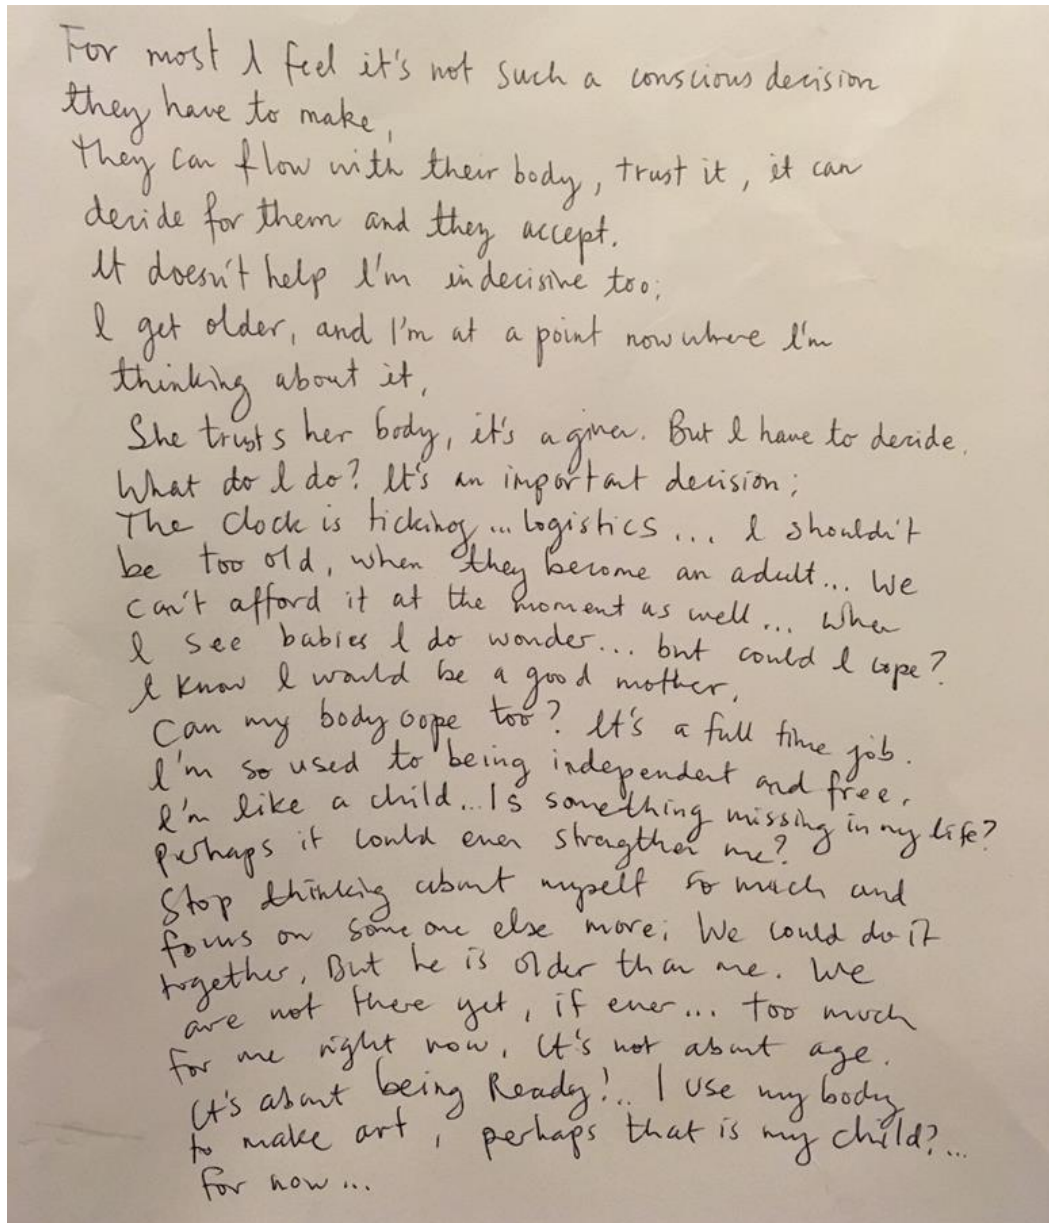 For most I feel it's not such a conscious decision
they have to make,
They can flow with their body, trust it, it can
decide for them and they accept.
It doesn't help I'm indecisive too;
I get older, and I'm at a point now where I'm
thinking about it,
She trusts her body, it's a given. But I have to decide.
What do I do? It's an important decision;
The clock is ticking... logistics... I shouldn't
be too old, when they become an adult... We
can't afford it at the moment as well... When
I see babies I do wonder... but could I cope?
I know I would be a good mother,
Can my body cope too? It's a full time job.
I'm so used to being independent and free.
I'm like a child... Is something missing in my life?
Perhaps it could even strengthen me?
Stop thinking about myself so much and
focus on someone else more; We could do it
together, But he is older than me. We
are not there yet, if ever... too much
for me right now. It's not about age.
It's about being Ready!.. I use my body
to make art, perhaps that is my child?...
For now...